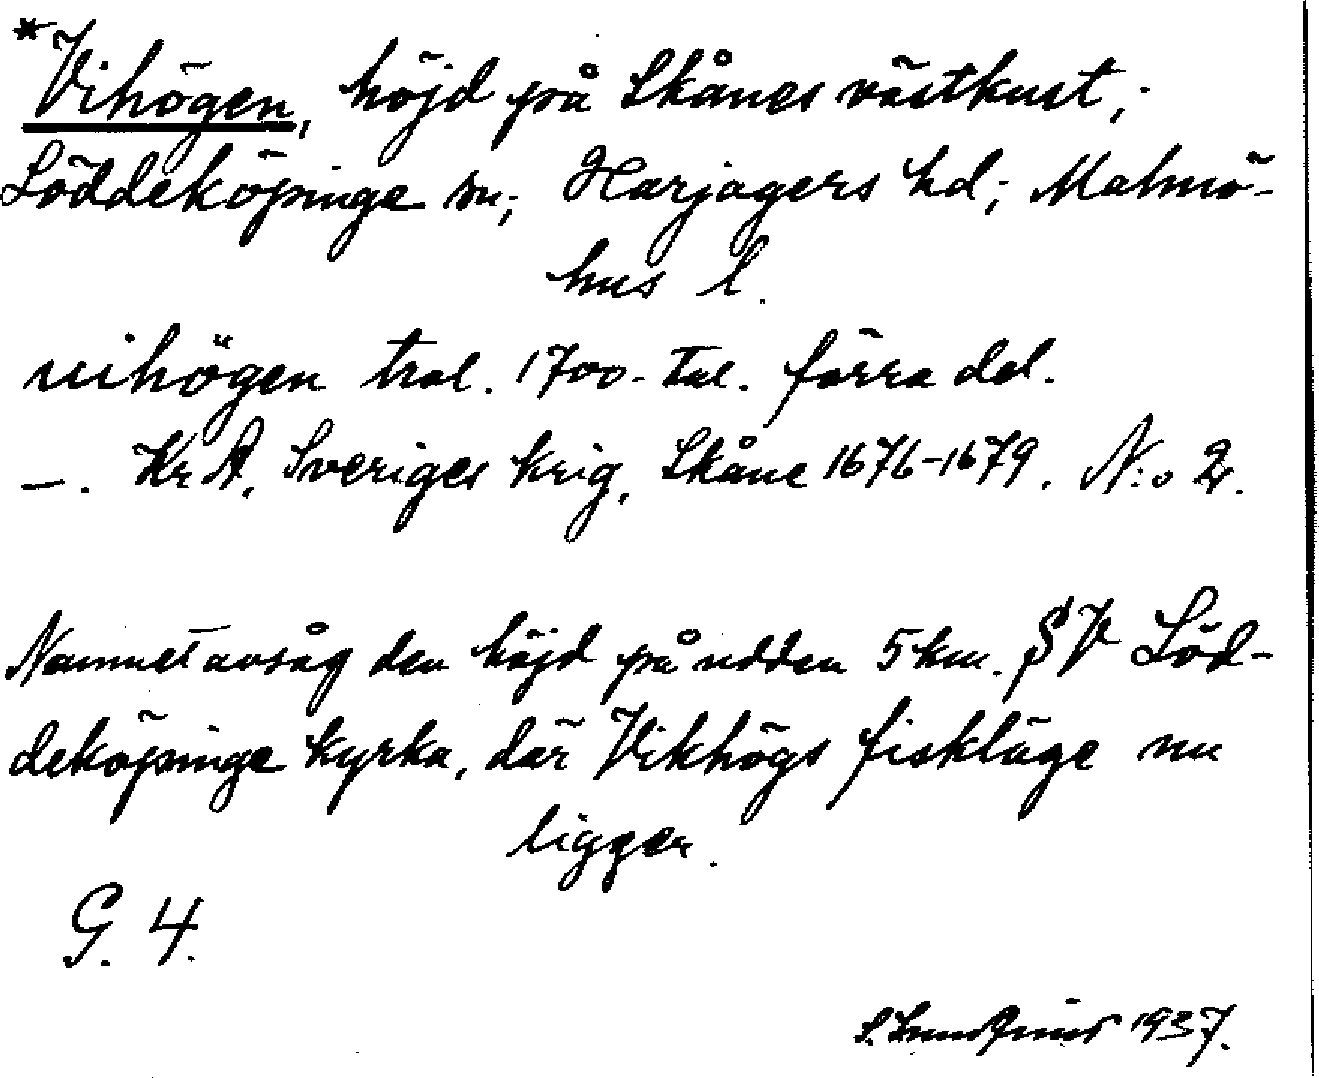 *Vihögen, höjd på Skånes västkust,;
Löddeköpinge sn; Harjagers hd; Malmö-
hus l.
vihögen trol. 1700-tal. förra del.
—. KrA, Sveriges krig, Skåne 1676-1679. N:o 2.
Namnet avsåg den höjd på udden 5 km. SV Löd-
deköpinge kyrka, där Vikhögs fiskläge nu
ligger.
G. 4.
1937.